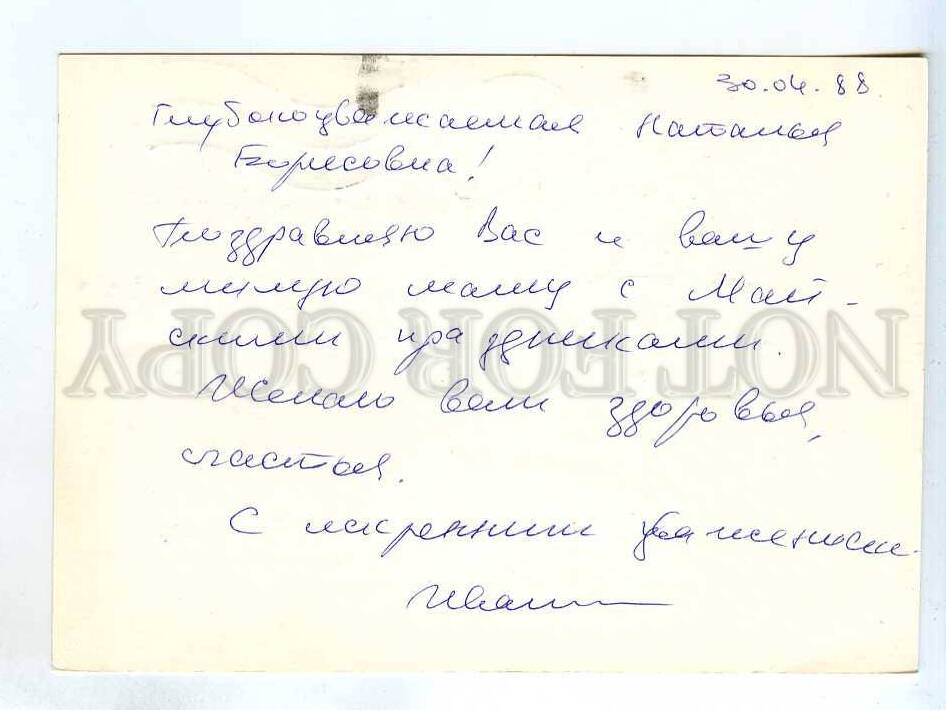 30.04.88.
Глубокоуважаемая Наталья
Борисовна!
Поздравляю Вас и вашу
милую маму с Май-
скими праздниками.
Желаю вам здоровья,
счастья.
С искренним уважением
NOT FOR COPY